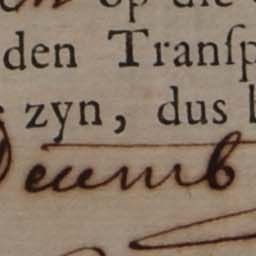 op die
den Tranſp
zyn, dus
Decemb